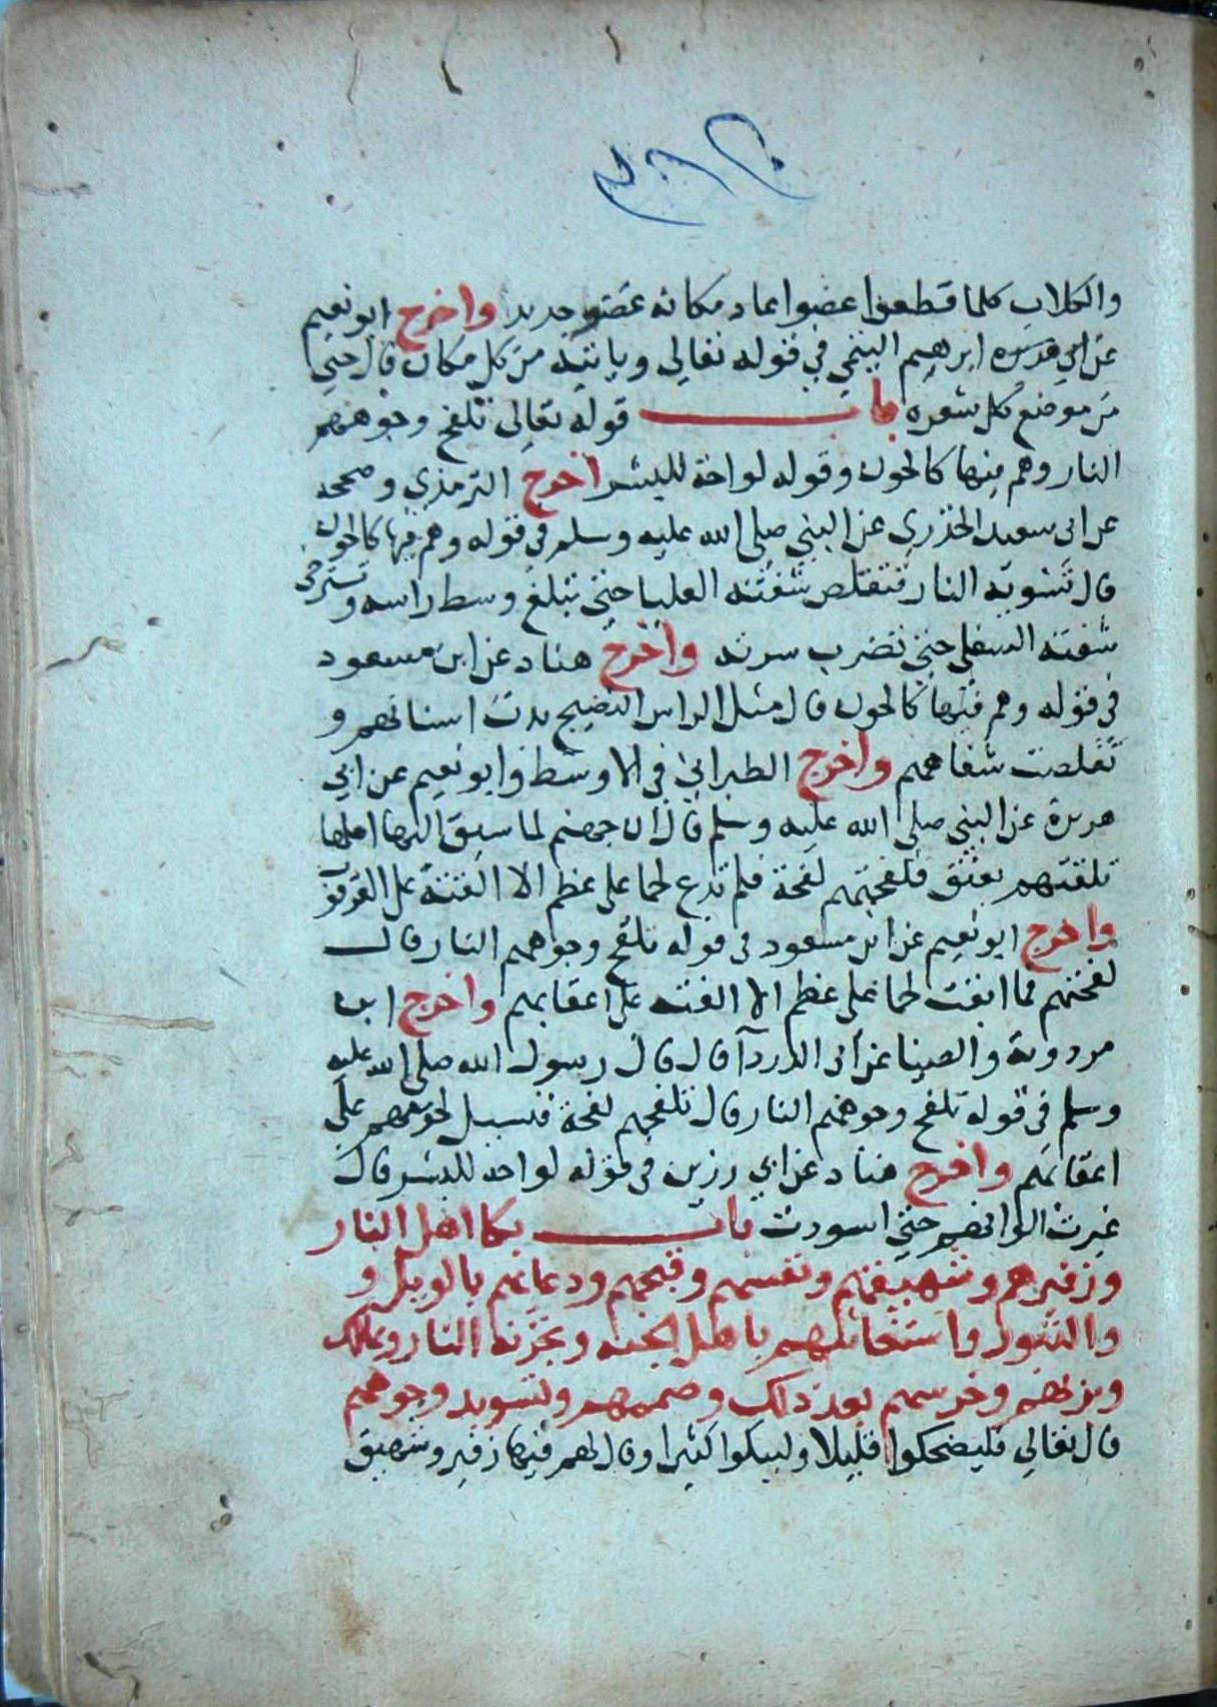 والكلاب كلما قطعوا عضوا عاد مكانه عضو جديد واخرج ابو نعيم
عن ابي هريره ابرهيم التيمي في قوله تعالى وياتيه من كل مكان قال حتى
من موضع كل شعره باب قوله تعالى تلفح وجوههم
النار وهم فيها كالحون وقوله لواحة للبشر اخرج الترمذي وصححه
عن ابي سعيد الخذري عن النبي صلى الله عليه وسلم في قوله وهم فيها كالحون
قال تشويه النار فتقلص شفته العليا حتى تبلغ وسط راسه وتسترخى
شفته السفلى حتى تضرب سرته واخرج هناد عن ابن مسعود
في قوله وهم فيها كالحون قال مثل الراس النضيج بدت اسنانهم و
تقلصت شفاههم واخرج الطبراني في الاوسط وابو نعيم عن ابي
هريرة عن النبي صلى الله عليه وسلم قال ان جهنم لما سيق اليها اهلها
تلقتهم بعنق فلفحتهم لفحة فلم تدع لحما على عظم الا القته على العرقوب
واخرج ابو نعيم عن ابن مسعود في قوله تلفح وجوههم النار قال
لفحتهم فما ابقت لحما على عظم الا القته على اعقابهم واخرج ابن
مردوية والضيا عن ابي الدردآ قال قال رسول الله صلى الله عليه
وسلم في قوله تلفح وجوههم النار قال تلفحهم لفحة فتسيل لحومهم على
اعقابهم واخرج هناد عن ابي رزين في قوله لواحة للبشر قال
غيرت الوانهم حتى اسودت باب بكا اهل النار
وزفيرهم وشهيقهم ونفسهم وقيحهم ودعايهم بالويل و
والثبور واستغاثتهم باهل الجنه وبخزنة النار ومالك
وبربهم وخرسهم بعد ذلك وصممهم وتسويد وجوههم
قال تعالى فليضحكوا قليلا وليبكوا كثيرا وقال لهم فيها زفير وشهيق